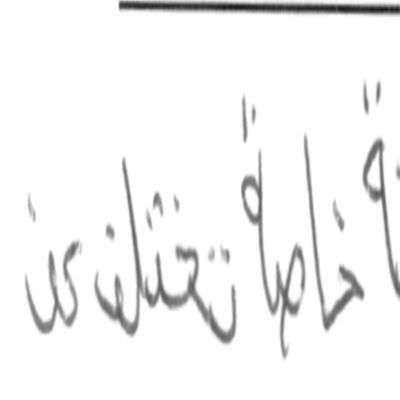 خاصة تختلف عن